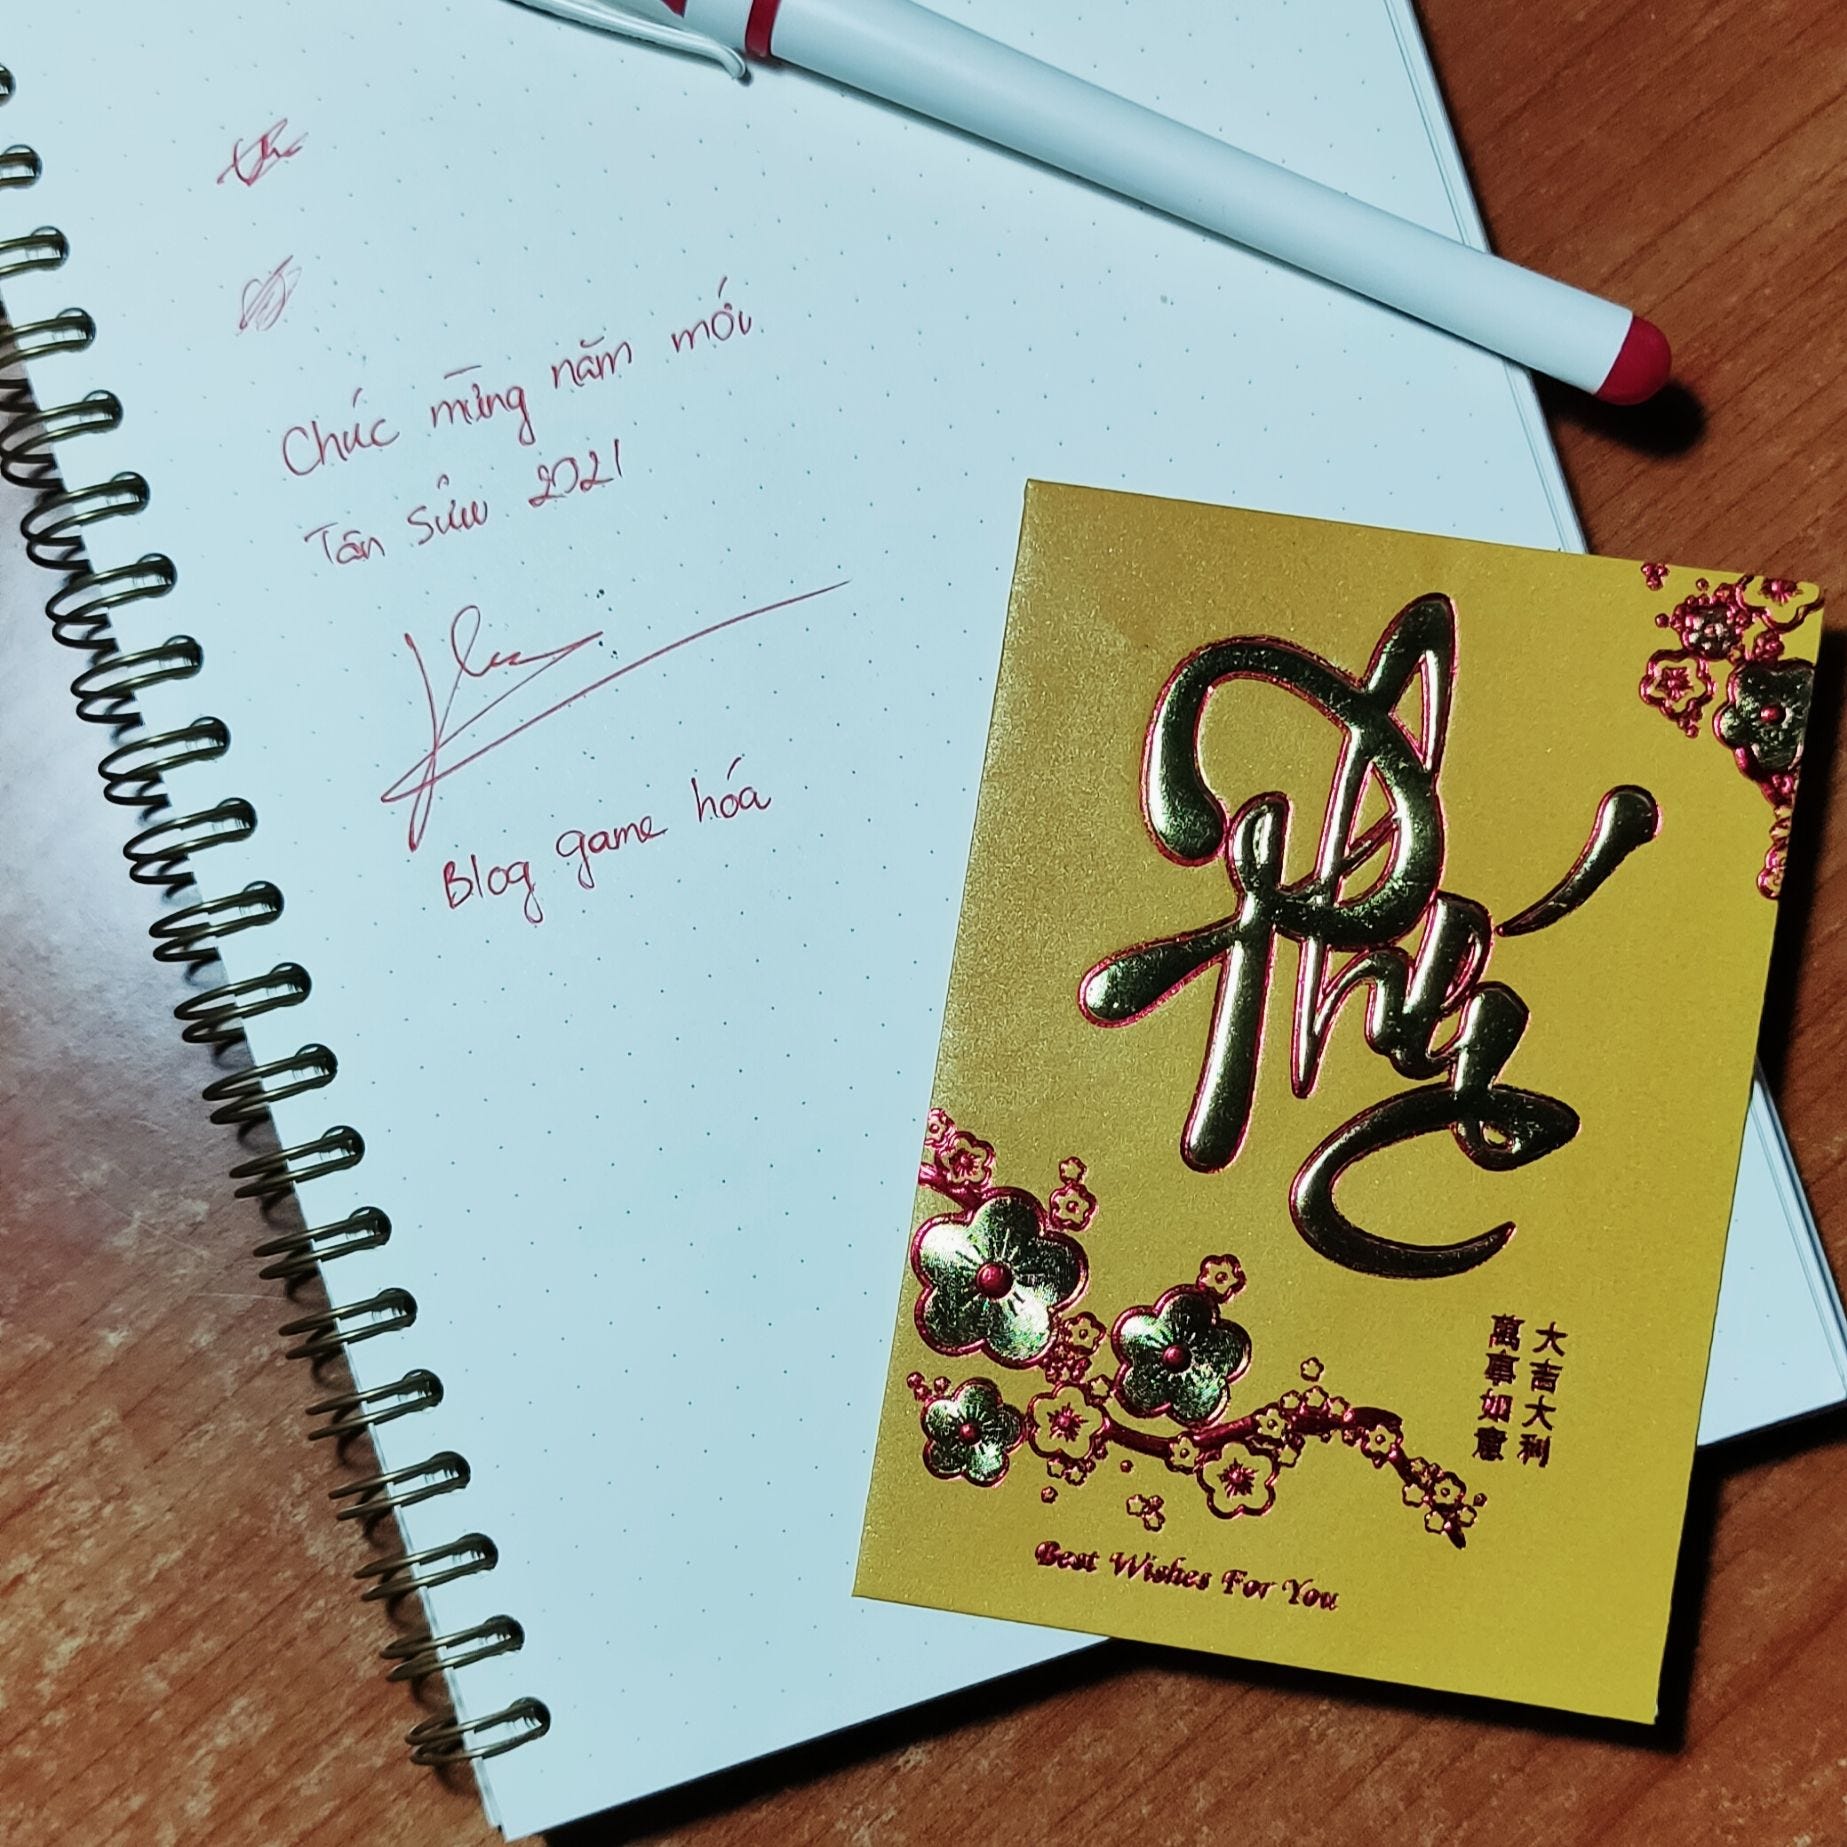 Chúc mừng năm mới
Tân Sửu 2021
Blog game hóa
Phúc
大吉大利
萬事如意
Best Wishes For You